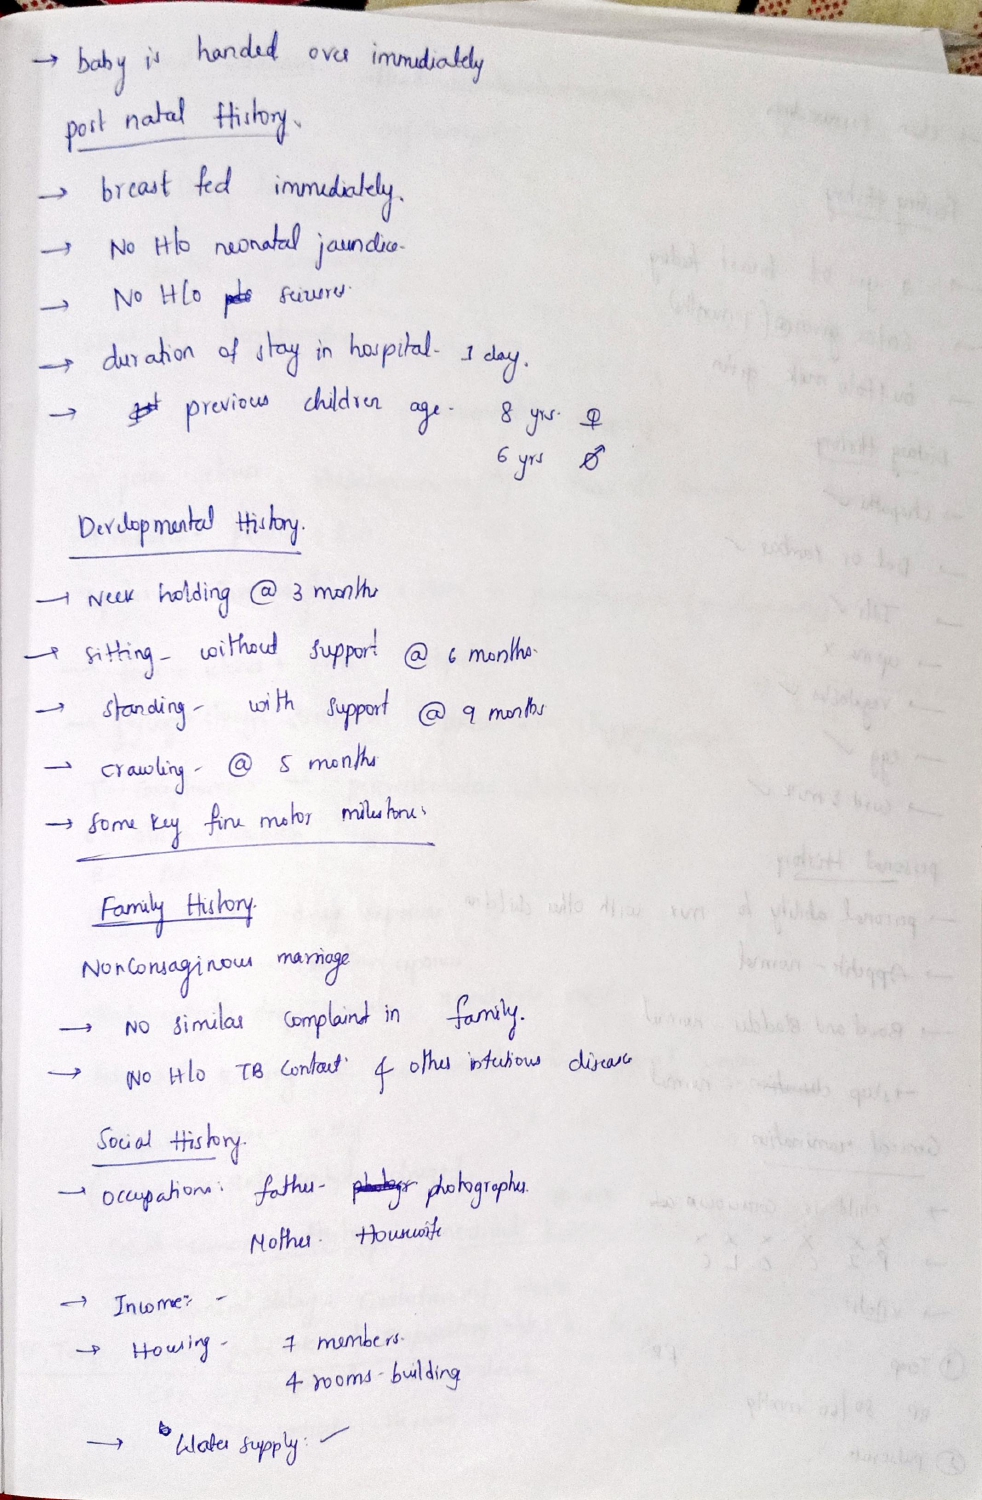 → baby is handed over immediately
post natal History.
→ breast fed immediately.
→ No H/o neonatal jaundice.
→ No H/o seizures.
→ duration of stay in hospital - 1 day.
→ previous children age - 8 yrs. ♀
6 yrs ♂
Developmental History.
→ Neck holding @ 3 months
→ sitting - without support @ 6 months.
→ standing - with support @ 9 months
→ crawling - @ 5 months
→ some key fine motor milestones
Family History.
Nonconsaginous marriage
→ No similar complaint in family.
→ No H/o TB contact & other infectious disease
Social History.
→ occupations: father - photographer.
Mother - Housewife
→ Income: -
→ Housing - 7 members.
4 rooms - building
→ Water supply: ✓